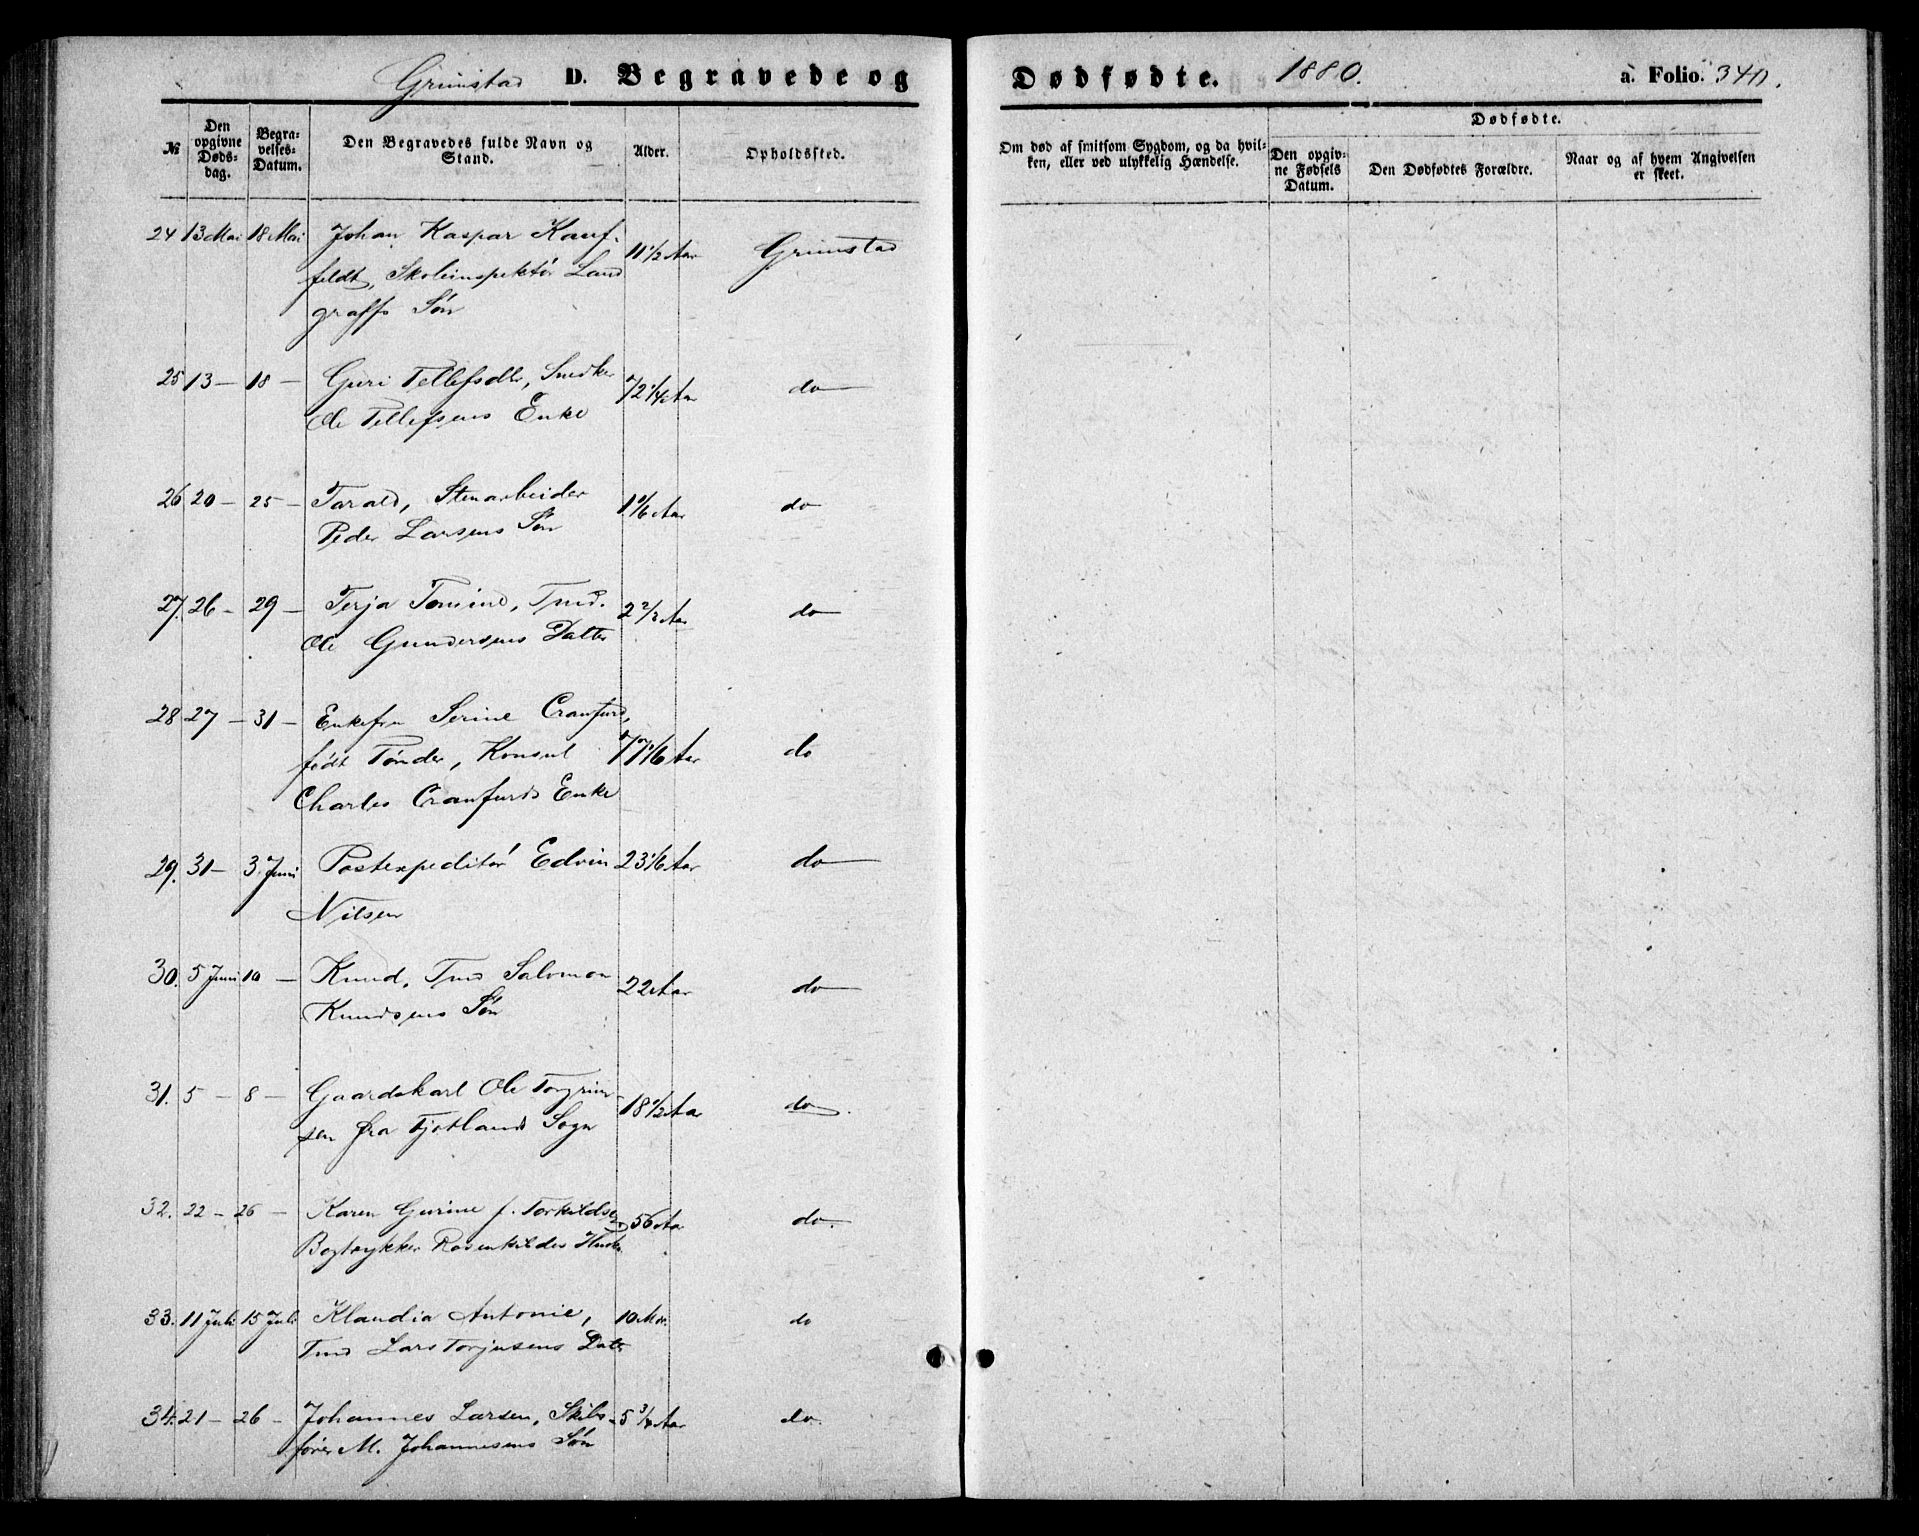 Grimstad D. Begravede og Dødfødte. 1880. a. Folio. 340.
№
Den opgivne Døds-dag.
Begra-velses-Datum.
Den Begravedes fulde Navn og Stand.
Alder.
Opholdssted.
Om død af smitsom Sygdom, og da hvil-
ken, eller ved ulykkelig Hændelse.
Dødfødte.
Den opgiv-
ne Fødsels
Datum.
Den Dødfødtes Forældre.
Naar og af hvem Angivelsen
er skeet.
24 13 Mai 18 Mai Johan Kaspar Kauf- 11 1/2 Aar Grimstad
feldt, Skoleinspektør Land
graffs Søn
25 13 — 18 — Guri Tellefsdtr, Snedker 72 1/4 Aar do
Ole Tellefsens Enke
26 20 — 25 — Tarald, Stenarbeider 1 1/6 Aar do
Peder Larsens Søn
27. 26 — 29 — Terja Tomine, Tmd. 2 2/3 Aar do
Ole Gundersens Datter
28 27 — 31 — Enkefru Serine Cranfurd,
født Tønder, Konsul 77 1/6 Aar do
Charles Cranfurds Enke
29. 31 — 3. Juni Postexpeditør Edvin 23 1/6 Aar do
Nilsen
30. 5 Juni 10 — Knud, Tmd Salomon 22 Aar do
Knudsens Søn
31. 5 — 8 — Gaardskarl Ole Torgrim- 18 1/2 Aar do.
sen fra Fjotlands Sogn
32. 22 — 26 — Karen Gurine f. Torkildsen 56 Aar do.
Bogtrykker Rosenkildes Hustr
33. 11 Juli 15 Juli Klaudia Antonie, 10 Mdr. do
Tmd Lars Torjusens Datr
34. 21 — 26 — Johannes Larsen, Skibs- 5 3/4 Aar do.
fører M. Johannesens Søn